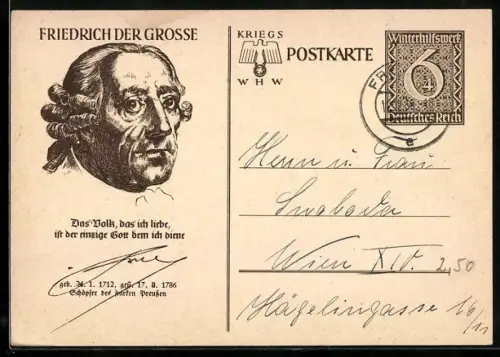 FRIEDRICH DER GROSSE
Das Volk, das ich liebe,
ist der einzige Gott dem ich diene
geb. 24. 1. 1712, gest. 17. 8. 1786
Schöpfer des starken Preußen
KRIEGS
WHW
POSTKARTE
Winterhilfswerk
6+4
Deutsches Reich
FR
e
Herrn u. Frau
Swoboda
Wien XIV.
2,50
Hägelingasse 16/11